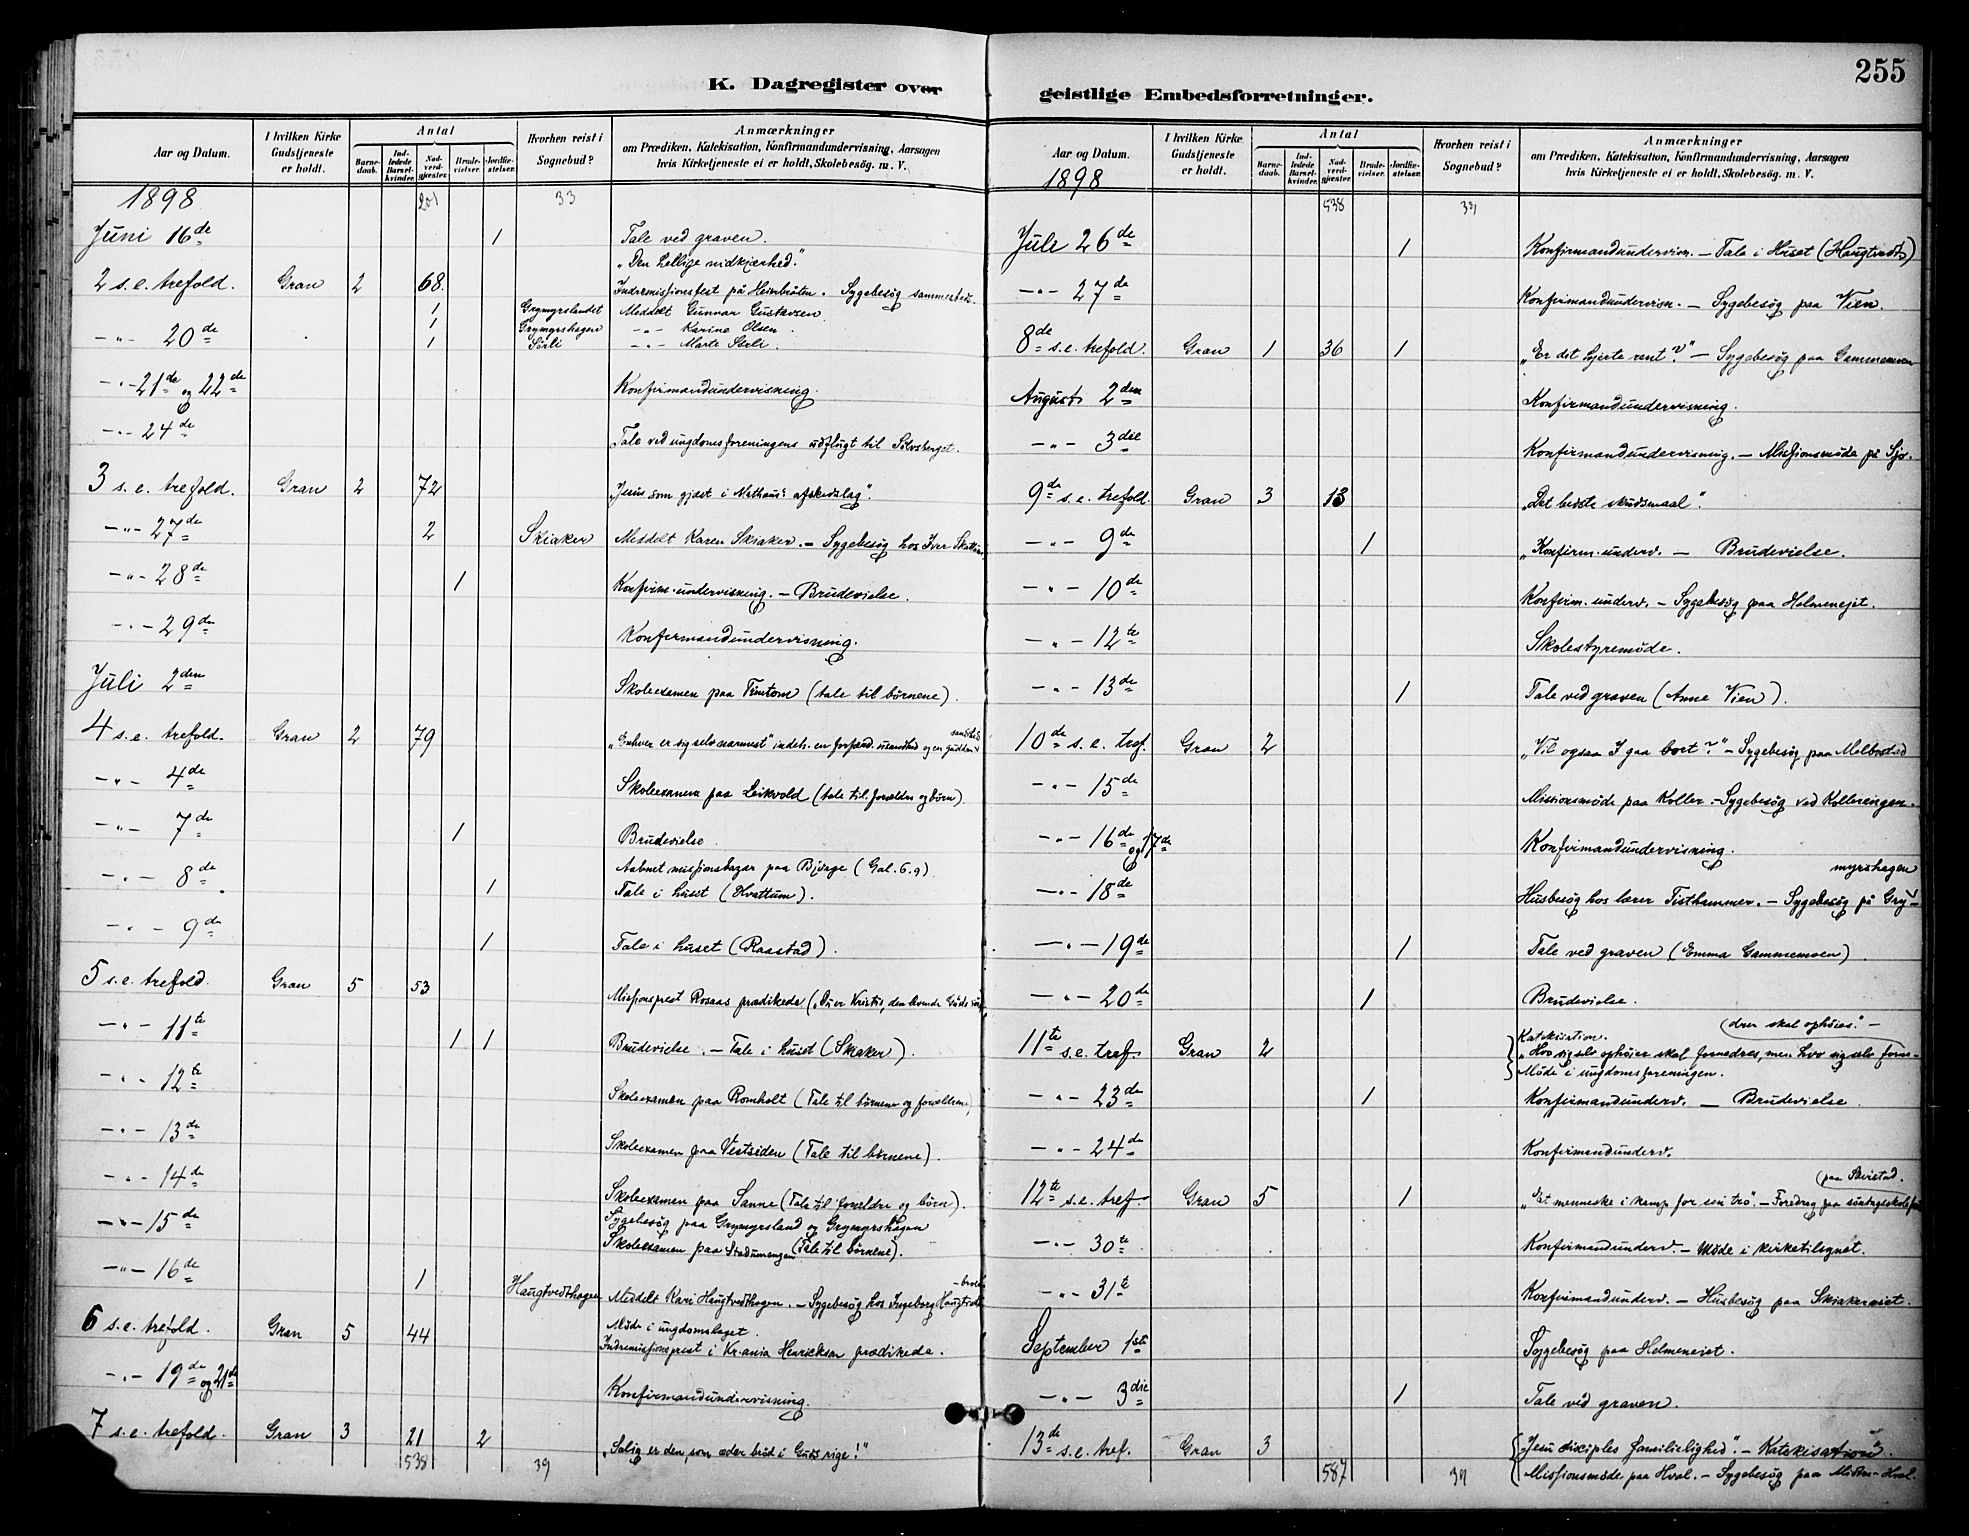 K. Dagregister over
Aar og Datum.
I hvilken Kirke Gudstjeneste er holdt.
Antal
Barnedaab.
Indledede Barselkvinder.
Nadverdgjæster.
Brudevielser.
Jordfæstelser.
Hvorhen reist i Sognebud?
Anmærkninger
om Prædiken, Katekisation, Konfirmandundervisning, Aarsagen
hvis Kirketjeneste ei er holdt, Skolebesög. m. V.
1898 201 33
Juni 16de 1 Tale ved graven.
"Den hellige nidkjærhed."
2 s.e. trefold. Gran 2 68 Indremissionsfest på Heimbråten. Sygebesøg sammesteds.
1 Grymyrslandet Meddelt Gunvor Gustavsen
-"- 20de 1 Grymyrshagen -"- Karine Olsen.
1 Sørli -"- Marte Sørli.
-"- 21de og 22de Konfirmandundervisning.
-"- 24de Tale ved ungdomsforeningens udflugt til Sølvsberget.
3 s.e. trefold. Gran 2 72 "Jesus som gjæst i Mathæus' afskedslag".
-"- 27de 2 Skiaker Meddelt Karen Skiaker. - Sygebesøg hos Iver
-"- 28de 1 Konfirm.undervisning. - Brudevielse.
-"- 29de Konfirmandundervisning.
Juli 2den Skoleexamen paa Tømton (tale til børnene).
4 s.e. trefold. Gran 2 79 "Enhver er sig selv nærmest" indeh. en
-"- 4de Skoleexamen paa Leikvold (tale til forældre og børn).
-"- 7de 1 Brudevielse.
Aabnet missionsbazar paa Bjørge (Gal. 6.9)
-"- 8de 1 Tale i huset (Hvattum).
-"- 9de 1 Tale i huset (Raastad).
5 s.e. trefold. Gran 5 53 Missionsprest Rosaas prædikede ("Du er Kristus, den levende Guds søn".
-"- 11te 1 1 Brudevielse. - Tale i huset (Skiaker).
-"- 12te Skoleexamen paa Romholt (Tale til børnene og forældrene)
-"- 13de Skoleexamen paa Vestsiden (Tale til børnene).
-"- 14de Skoleexamen paa Sanne (Tale til forældre og børn).
-"- 15de Sygebesøg paa Grymyrsland og Grymyrshagen
Skoleexamen paa (Tale til børnene).
-"- 16de 1 Haugtvedthagen Meddelt Kari Haugtvedthagen. - Sygebesøg hos Ingeborg
6 s.e. trefold. Gran 5 44 Møde i ungdomslaget.
Indremissionsprest i Kr.ania Henriksen prædikede.
-"- 19de og 21de Konfirmandundervisning.
7 s.e. trefold. Gran 3 21 2 "Salig er den, som æder brød i Guds rige!"
538 39
255
geistlige Embedsforretninger.
Aar og Datum.
I hvilken Kirke Gudstjeneste er holdt.
Antal
Barnedaab.
Indledede Barselkvinder.
Nadverdgjæster.
Brudevielser.
Jordfæstelser.
Hvorhen reist i Sognebud?
Anmærkninger
om Prædiken, Katekisation, Konfirmandundervisning, Aarsagen
hvis Kirketjeneste ei er holdt, Skolebesög. m. V.
1898 538 39
Juli 26de 1 Konfirmandundervisn. - Tale i Huset (Haugtvedt)
-"- 27de Konfirmandundervisn. - Sygebesøg paa Vien.
8de s.e. trefold. Gran 1 36 1 "Er dit hjerte rent?" - Sygebesøg paa Gammemoen
August 2den Konfirmandundervisning.
-"- 3die Konfirmandundervisning. - Missionsmøde på Sjo.
9de s.e. trefold. Gran 3 13 "Det bedste skudsmaal".
-"- 9de 1 Konfirm.underv. - Brudevielse.
-"- 10de Konfirm.underv. - Sygebesøg paa Helmeneiet.
-"- 12te Skolestyremøde.
-"- 13de 1 Tale ved graven (Anne Vien).
10de s.e. tref. Gran 2 "Vil ogsaa I gaa bort?" - Sygebesøg paa Melbostad
-"- 15de Missionsmøde paa Koller. - Sygebesøg ved Kollerengen.
-"- 16de og 17de Konfirmandundervisning.
myrshagen
-"- 18de Husbesøg hos lærer Tisthammer. - Sygebesøg på Gry-
-"- 19de 1 Tale ved graven (Emma Gammemoen)
-"- 20de 1 Brudevielse.
Katekisation. (dres skal ophøies." -
11te s.e. tref. Gran 2 "Hvo sig selv ophøier skal fornedres, men hvo sig selv forne-
Møde i ungdomsforeningen.
-"- 23de 1 Konfirmandunderv. - Brudevielse
-"- 24de Konfirmandunderv.
12te s.e. tref. Gran 5 1 "Et menneske i kamp for sin tro". - Foredrag paa
-"- 30te Konfirmandunderv. - Møde i kirketilsynet.
-"- 31te Konfirmandunderv. - Husbesøg paa Skiakereiet.
September 1ste Sygebesøg paa Helmeneiet.
-"- 3die 1 Tale ved graven.
13de s.e. tref. Gran 3 "Jesu disciples familielighed". - Katekisation.
Missionsmøde paa Hval. - Sygebesøg paa Midtre-Hval.
587 39